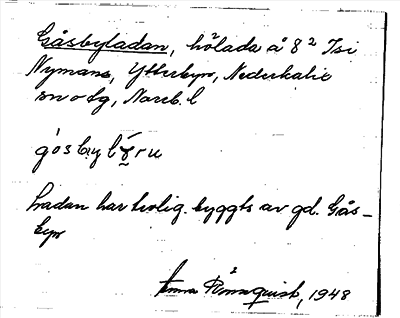 Gåsbyladan, hölada å 8² Isi
Nymans, Ytterbyn, Nederkalix
sn o tg, Norrb. l
gósbylǫ́ru
Ladan har trolig. byggts av gd. Gås-
byn
Anna Rönnquist, 1948